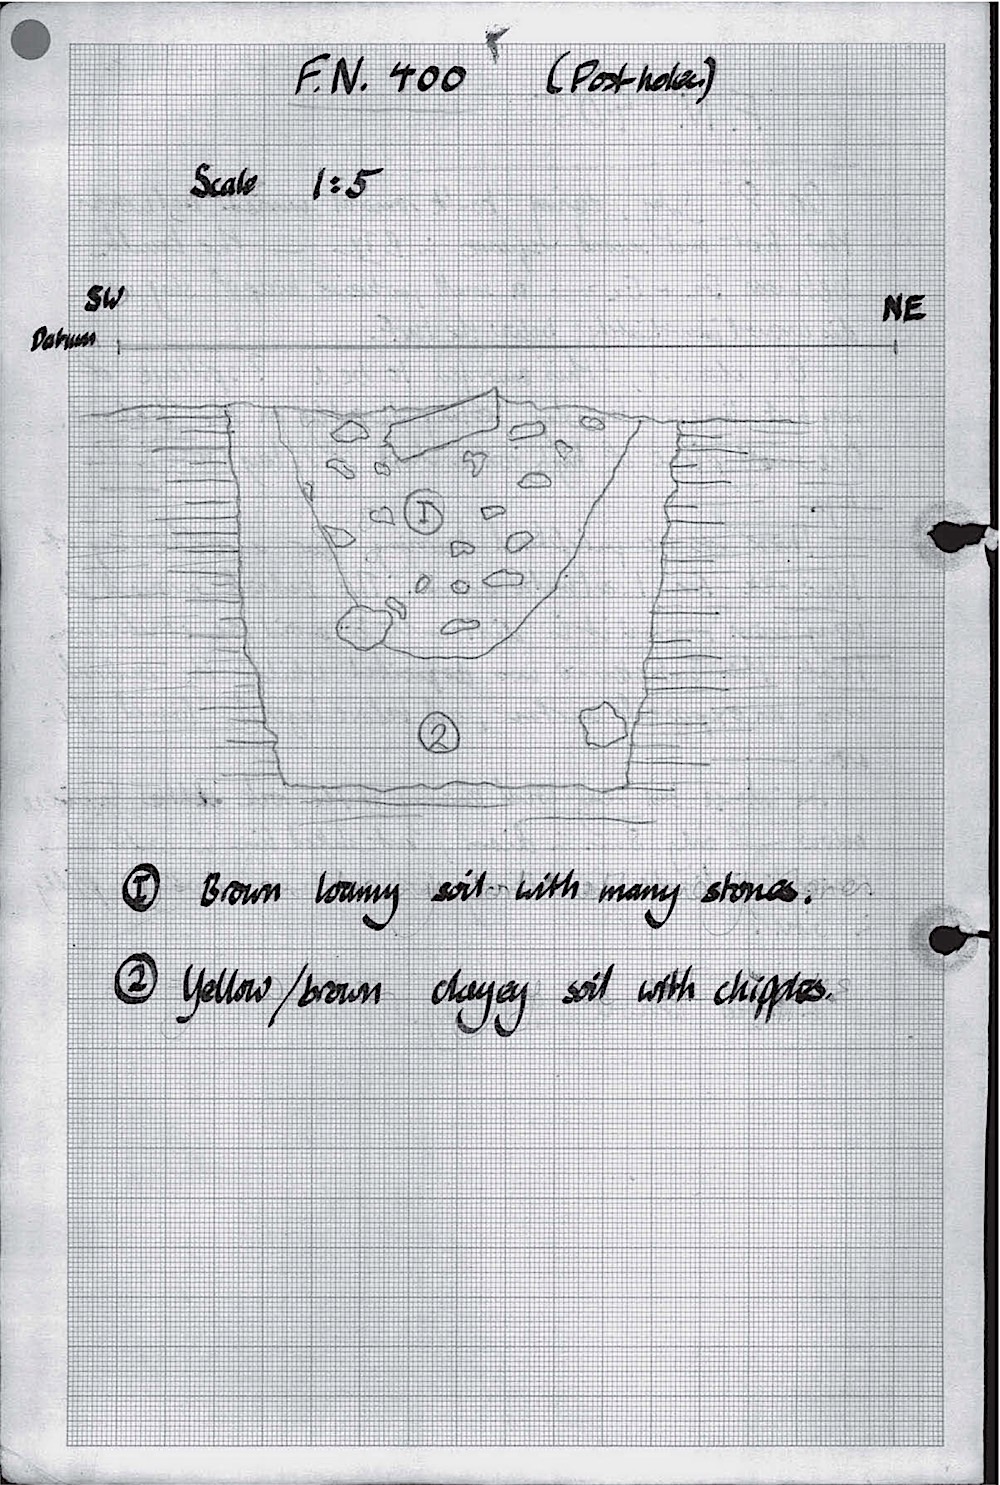 F.N. 400 (Post-holes)
Scale 1:5
SW
NE
Datum
1
2
1 Brown loamy soil with many stones.
2 Yellow/brown clayey soil with chipples.